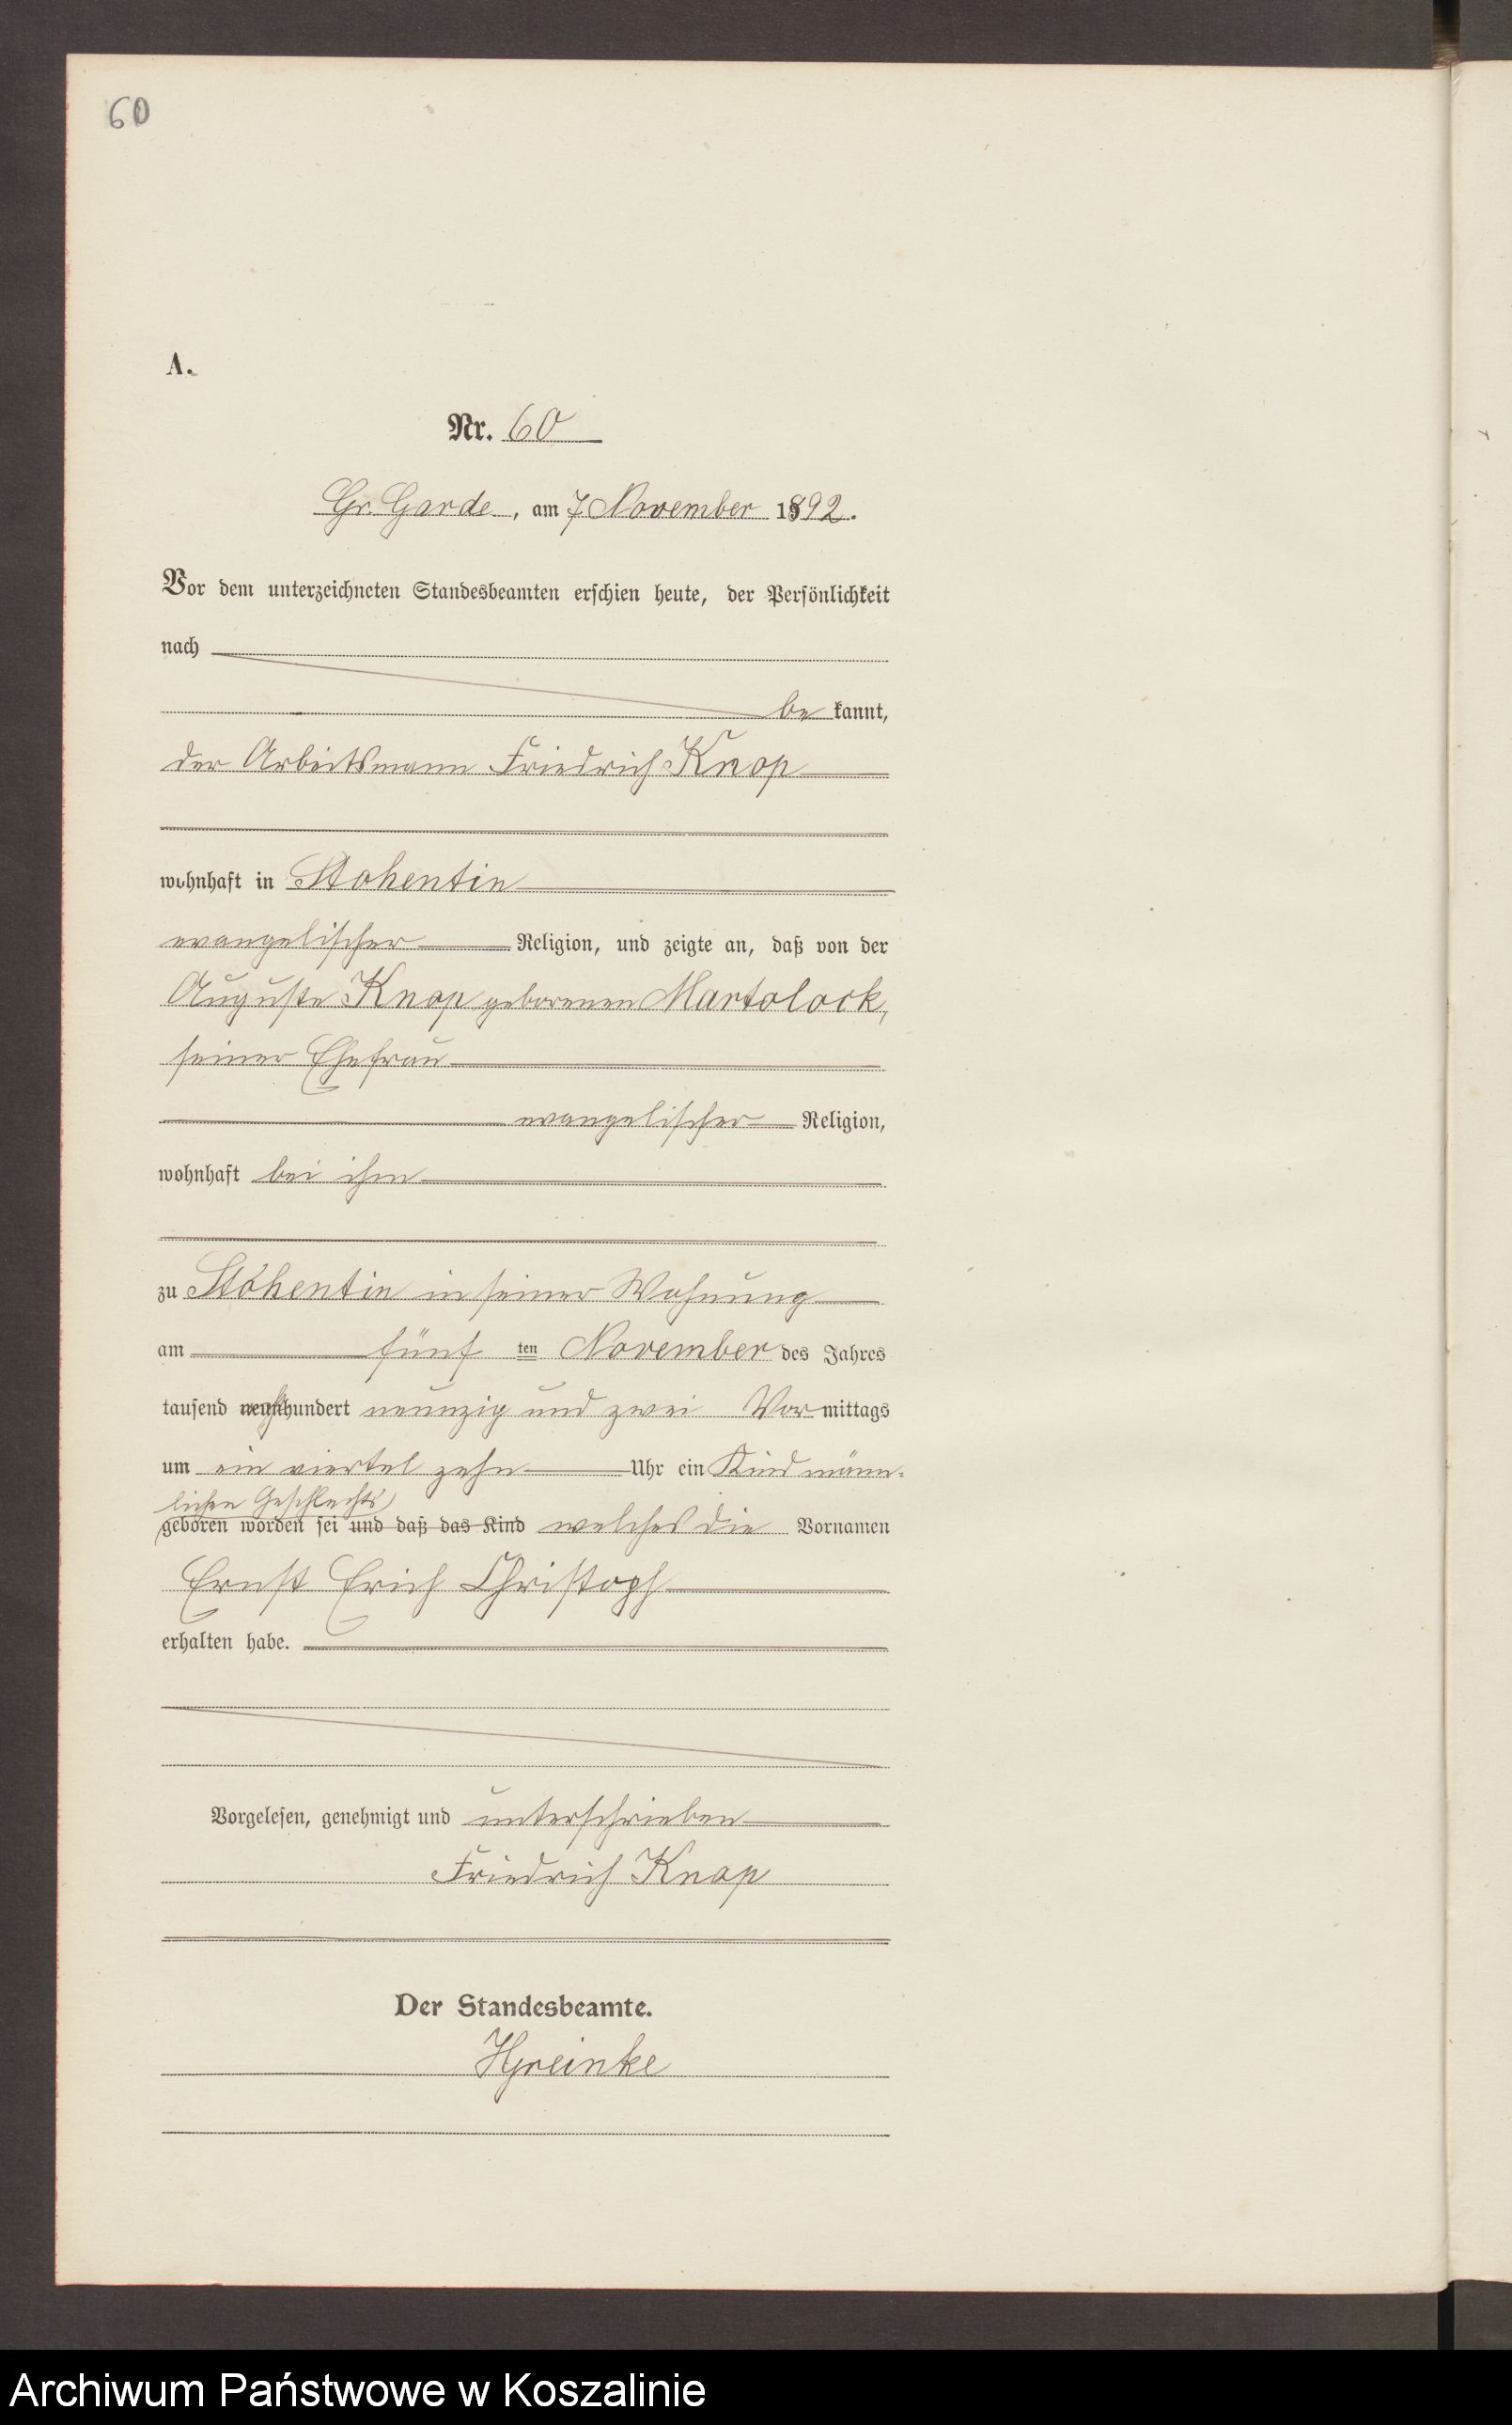 60
A.
Nr. 60
Gr. Garde, am 7 November 1892.
Vor dem unterzeichneten Standesbeamten erschien heute, der Persönlichkeit
nach
be kannt,
der Arbeitsmann Friedrich Knop
wohnhaft in Stohentin
evangelischer Religion, und zeigte an, daß von der
Auguste Knop geborenen Martolock,
seiner Ehefrau
evangelischer Religion,
wohnhaft bei ihm
zu Stohentin in seiner Wohnung
am fünf ten November des Jahres
tausend hundert neunzig und zwei Vor mittags
um ein viertel zehn Uhr ein Kind männ-
lichen Geschlechts
geboren worden sei und daß das Kind welches die Vornamen
Ernst Erich Christoph
erhalten habe.
Vorgelesen, genehmigt und unterschrieben
Friedrich Knop
Der Standesbeamte.
Archiwum Państwowe w Koszalinie